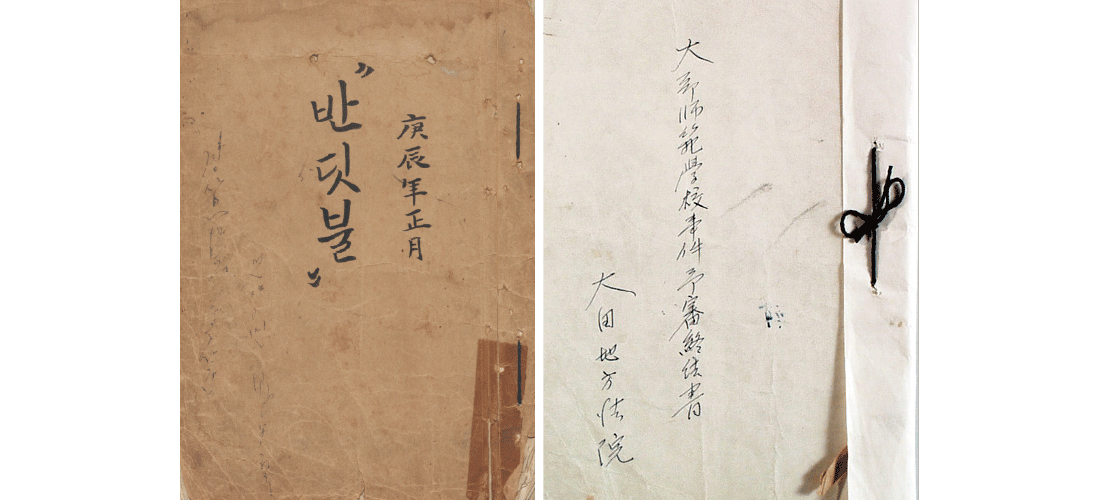 庚辰年正月
"반딧불"
大邱師範學校事件予審終結書
大田地方法院